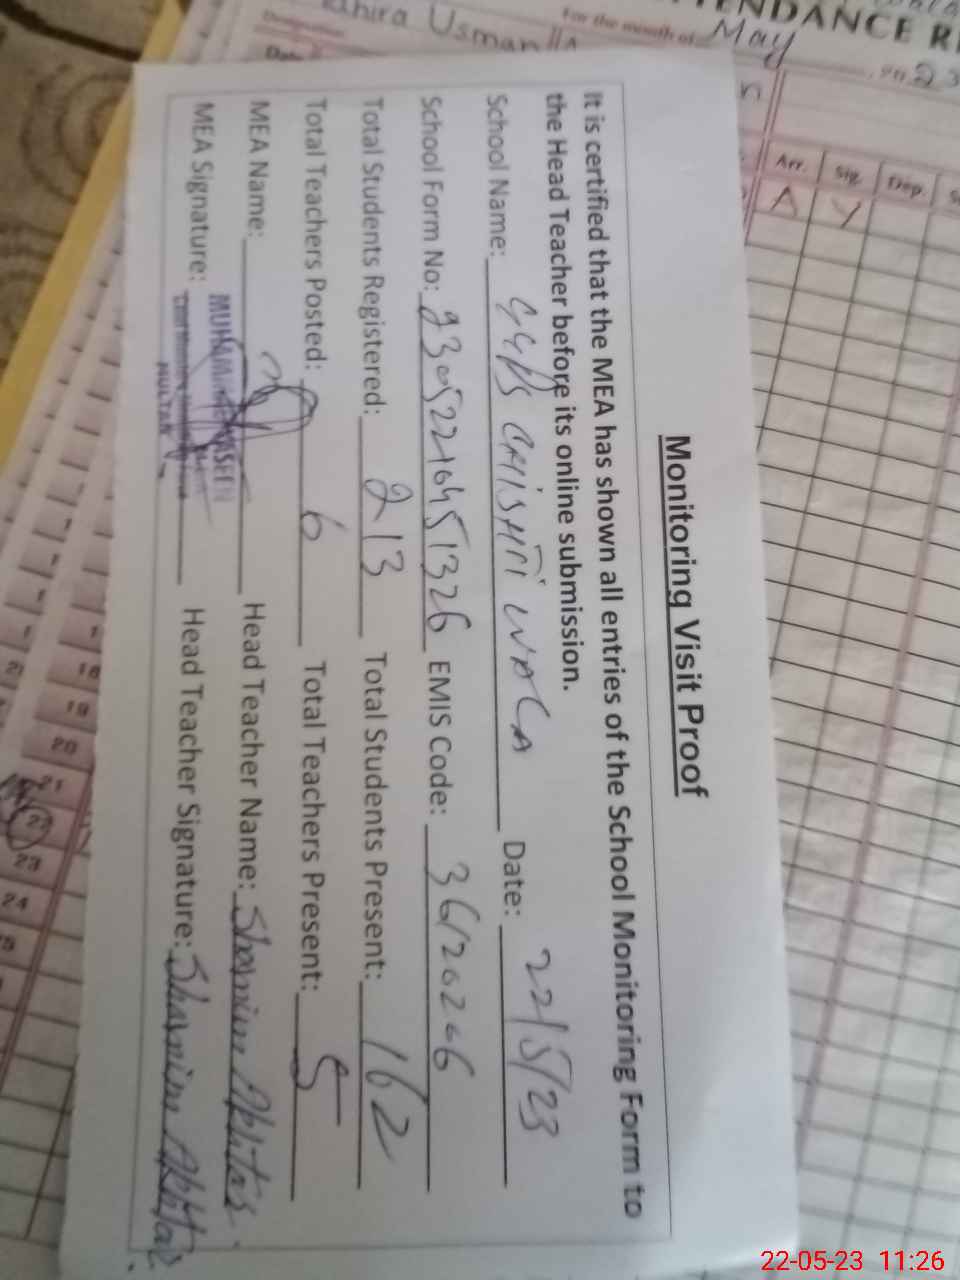 Usman
For the month of May
Arr. Sig. Dep.
Monitoring Visit Proof
It is certified that the MEA has shown all entries of the School Monitoring Form to
the Head Teacher before its online submission.
School Name: GGPS CHISHTI WALA Date: 22/5/23
School Form No: EMIS Code:
Total Students Registered: 213 Total Students Present: 162
Total Teachers Posted: 6 Total Teachers Present: 5
MEA Name: Head Teacher Name: Shamim Akhtar
MEA Signature: Head Teacher Signature: Shamim Akhtar
MULTAN
19
20
21
23
24
22-05-23 11:26